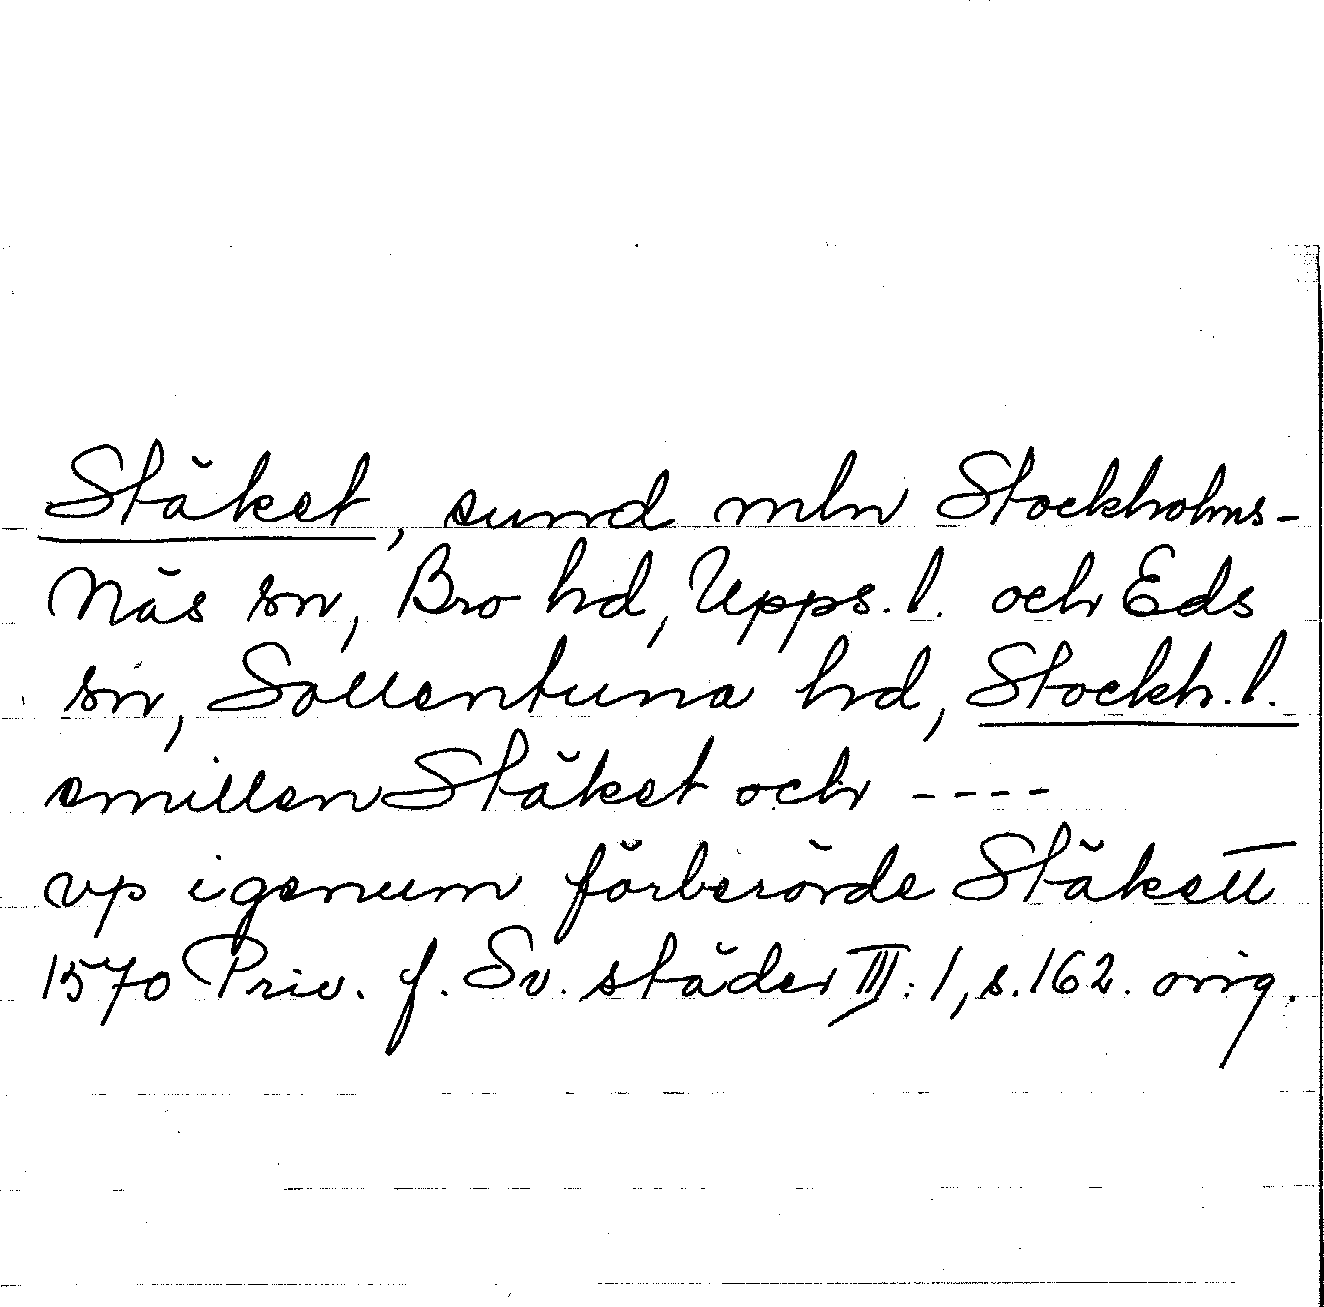 Stäket, sund mln Stockholms-
Näs sn, Bro hd, Upps. l. och Eds
sn, Sollentuna hd, Stockh. l.
emillen Stäket och ----
vp igenum förberörde Stäkett
1570 Priv. f. Sv. städer III: 1, s. 162. orig.